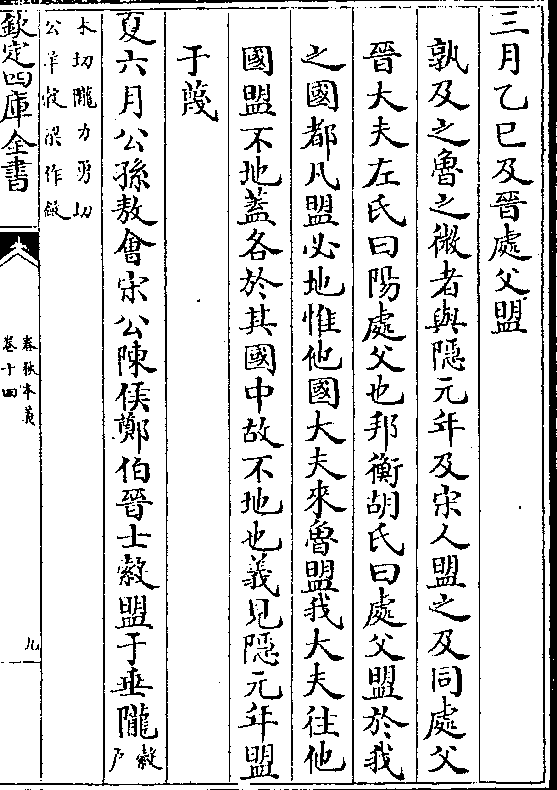 三月乙巳及晉處父盟
孰及之魯之微者與隱元年及宋人盟之及同處父
晉大夫左氏曰陽處父也邦衡胡氏曰處父盟於我
之國都凡盟必地惟他國大夫來魯盟我大夫往他
國盟不地蓋各於其國中故不地也義見隱元年盟
于蔑
夏六月公孫敖會宋公陳侯鄭伯晉士縠盟于垂隴縠戸
木切隴力勇切
公羊穀梁作歛
欽定四庫全書
春秋本義
卷十四
九